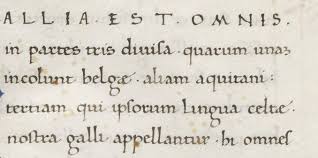 ALLIA · EST · OMNIS ·
in partes tris divisa · quarum unaz
incolunt belgæ · aliam aquitani :
tertiam qui ipsorum lingua celtæ ·
nostra galli appellantur · hi omnes